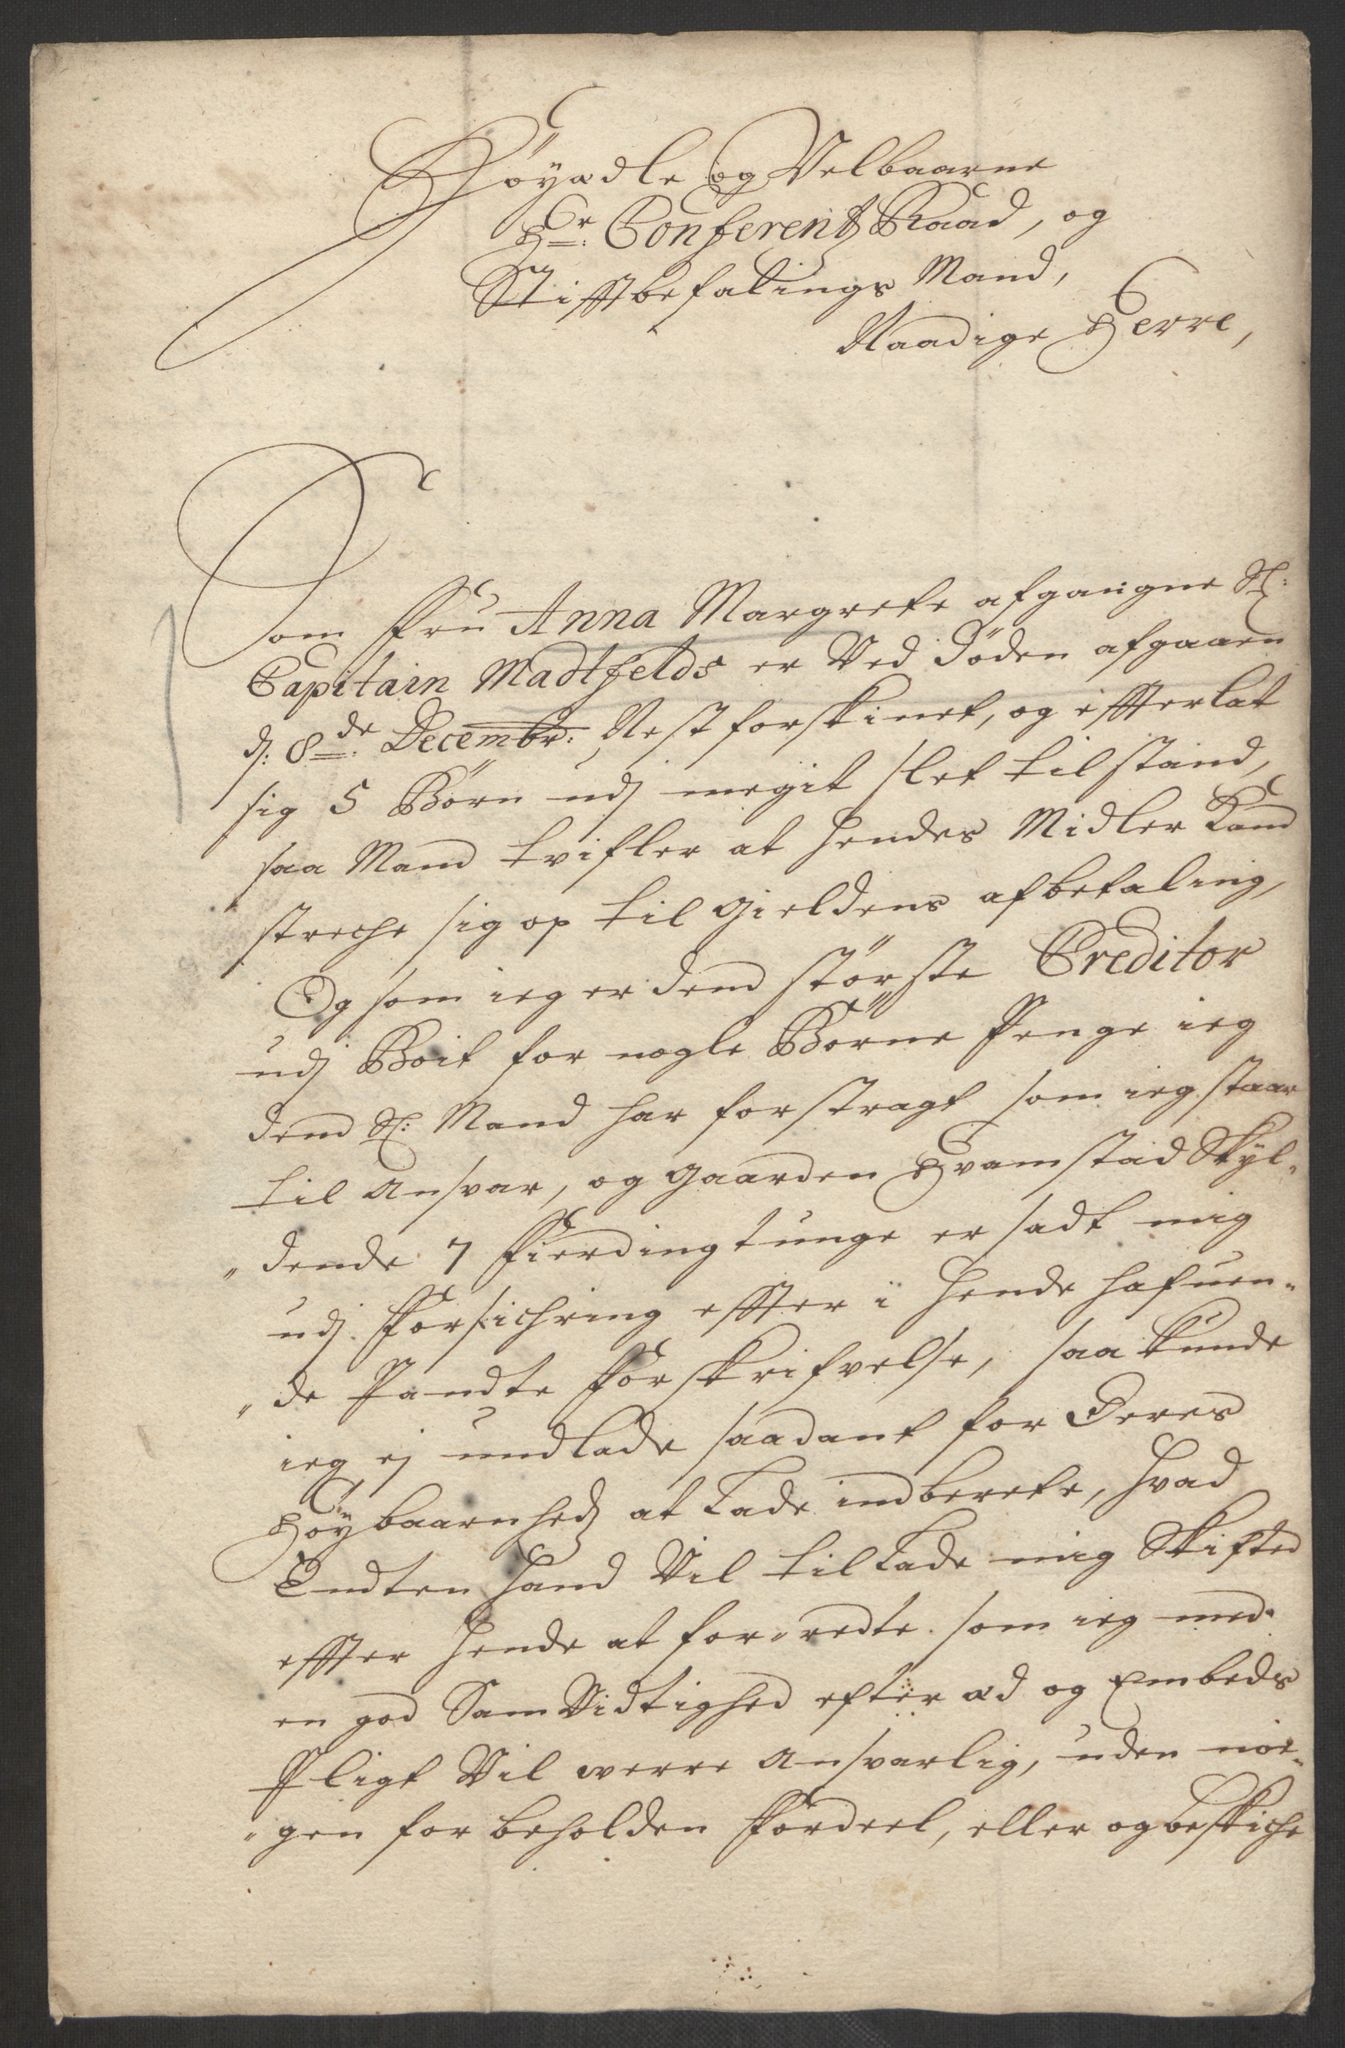 Höyædle og Velbaarne
Hr: Conferentz Raad, og
Stiftbefalings Mand,
Naadige Herre,
Som Fru Anna Margrete afgangne Sl:
Capitain Madtfelds er Ved Döden afgaaen
d: 8de: Decembr: Nest forskinet, og effterlat
sig 5 Börn udj megit slet tilstand,
saa Mand tvifler at hendes Midler Kand
streche sig op til gieldens afbetaling,
Og som ieg er dend störste Creditor
udj Boit for nogle Börne Penge ieg
dend Sl: Mand har forstragt som ieg staar
til Ansvar, og gaarden Hvamstad Skÿl„
„dende 7 Fierdingtunge er sadt mig
udj Forsichring effter i hende hafuen„
„de Pandte Forskrifvelse, saa kunde
ieg ej undlade saadant for Deres
Höÿbaarnhed at lade indberete, hvad
Endten hand Vil tillade mig Skifted
effter hende at for„redte som ieg med
en god SamVidtighed efter æd og Embeds
Pligt Vil werre Ansvarlig, uden noi„
„gen forbeholden Fordeel, eller og beskiche